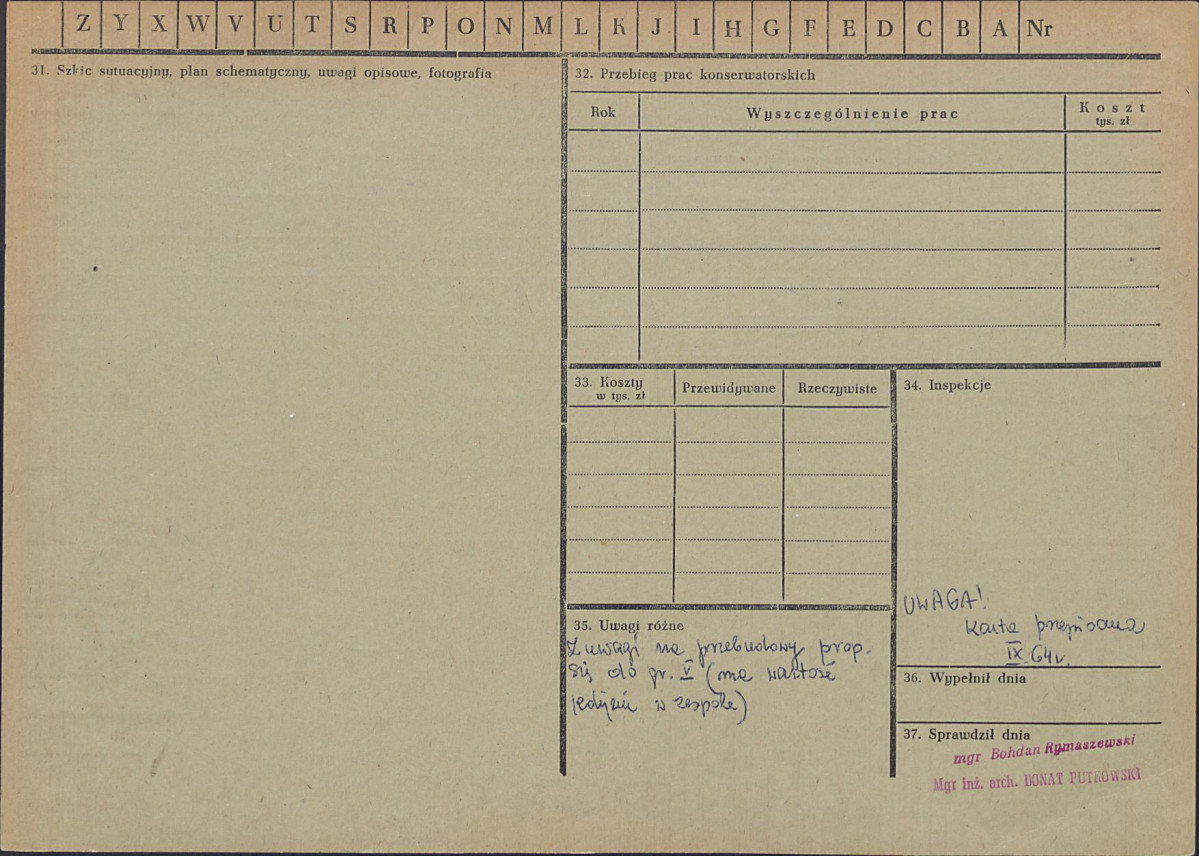 Z Y X W V U T S R P O N M L K J I H G F E D C B A Nr
31. Szkic sytuacyjny, plan schematyczny, uwagi opisowe, fotografia
32. Przebieg prac konserwatorskich
Rok Wyszczególnienie prac Koszt
tys. zł
33. Koszty
w tys. zł
Przewidywane Rzeczywiste
34. Inspekcje
UWAGA!
Karta przepisana
IX. 64 r.
35. Uwagi różne
Z uwagi na przebudowy prop.
się do gr. V (ma wartość
jedynie w zespole)
36. Wypełnił dnia
37. Sprawdził dnia
mgr Bohdan Rymaszewski
Mgr inż. arch. DONAT PUTKOWSKI